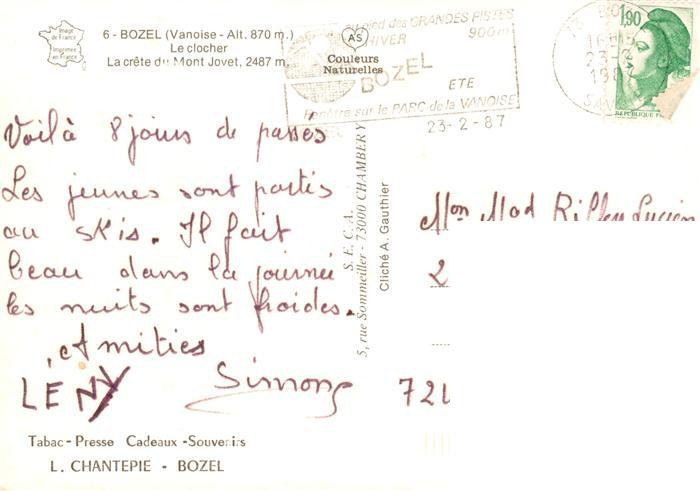 Image
de France
Imprimée
en France
6 - BOZEL (Vanoise - Alt. 870 m.)
Le clocher
La crête du Mont Jovet, 2487 m.
AS
Couleurs
Naturelles
au pied des GRANDES PISTES
HIVER 900m
BOZEL
ETE
Fenêtre sur le PARC de la VANOISE
23-2-87
1,90
Voilà 8 jours de passés
Les jeunes sont partis
au skis. Il fait
beau dans la journée
les nuits sont froides.
Amitiés
LÉNY Simone
S. E. C. A.
5, rue Sommeiller - 73000 CHAMBERY
Cliché A. Gauthier
Mon Mad
2
72
Tabac - Presse Cadeaux - Souvenirs
L. CHANTEPIE - BOZEL